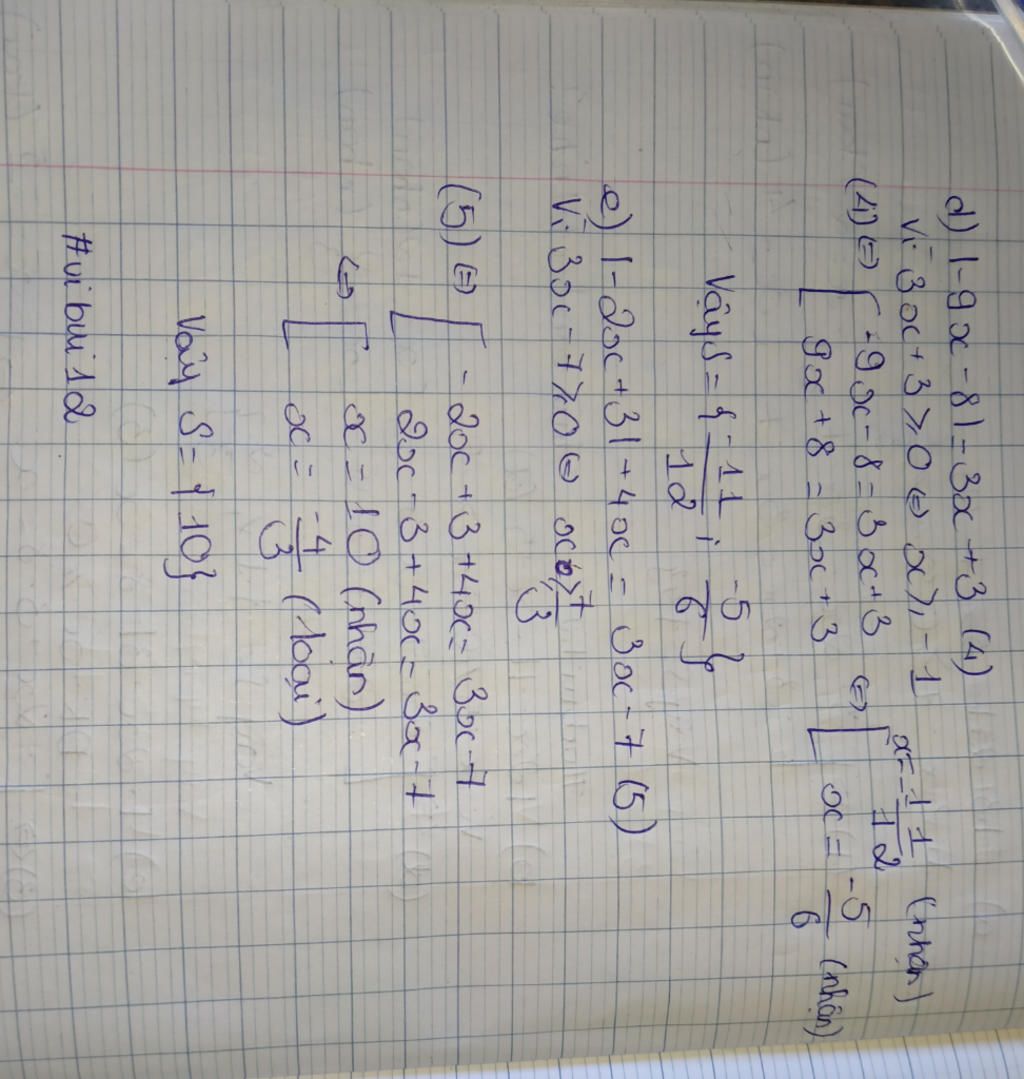 d) |-9x-8| = 3x+3 (4)
Vì 3x+3 ≥ 0 ⇔ x ≥ -1
(4) ⇔ [ -9x-8 = 3x+3 ⇔ [ x = -11/12 (nhận)
9x+8 = 3x+3 x = -5/6 (nhận)
Vậy S = { -11/12 ; -5/6 }
e) |-2x+3| + 4x = 3x-7 (5)
Vì 3x-7 ≥ 0 ⇔ x ≥ 7/3
(5) ⇔ [ -2x+3+4x = 3x-7
2x-3+4x = 3x-7
⇔ [ x = 10 (nhận)
x = -4/3 (loại)
Vậy S = {10}
#vibui12